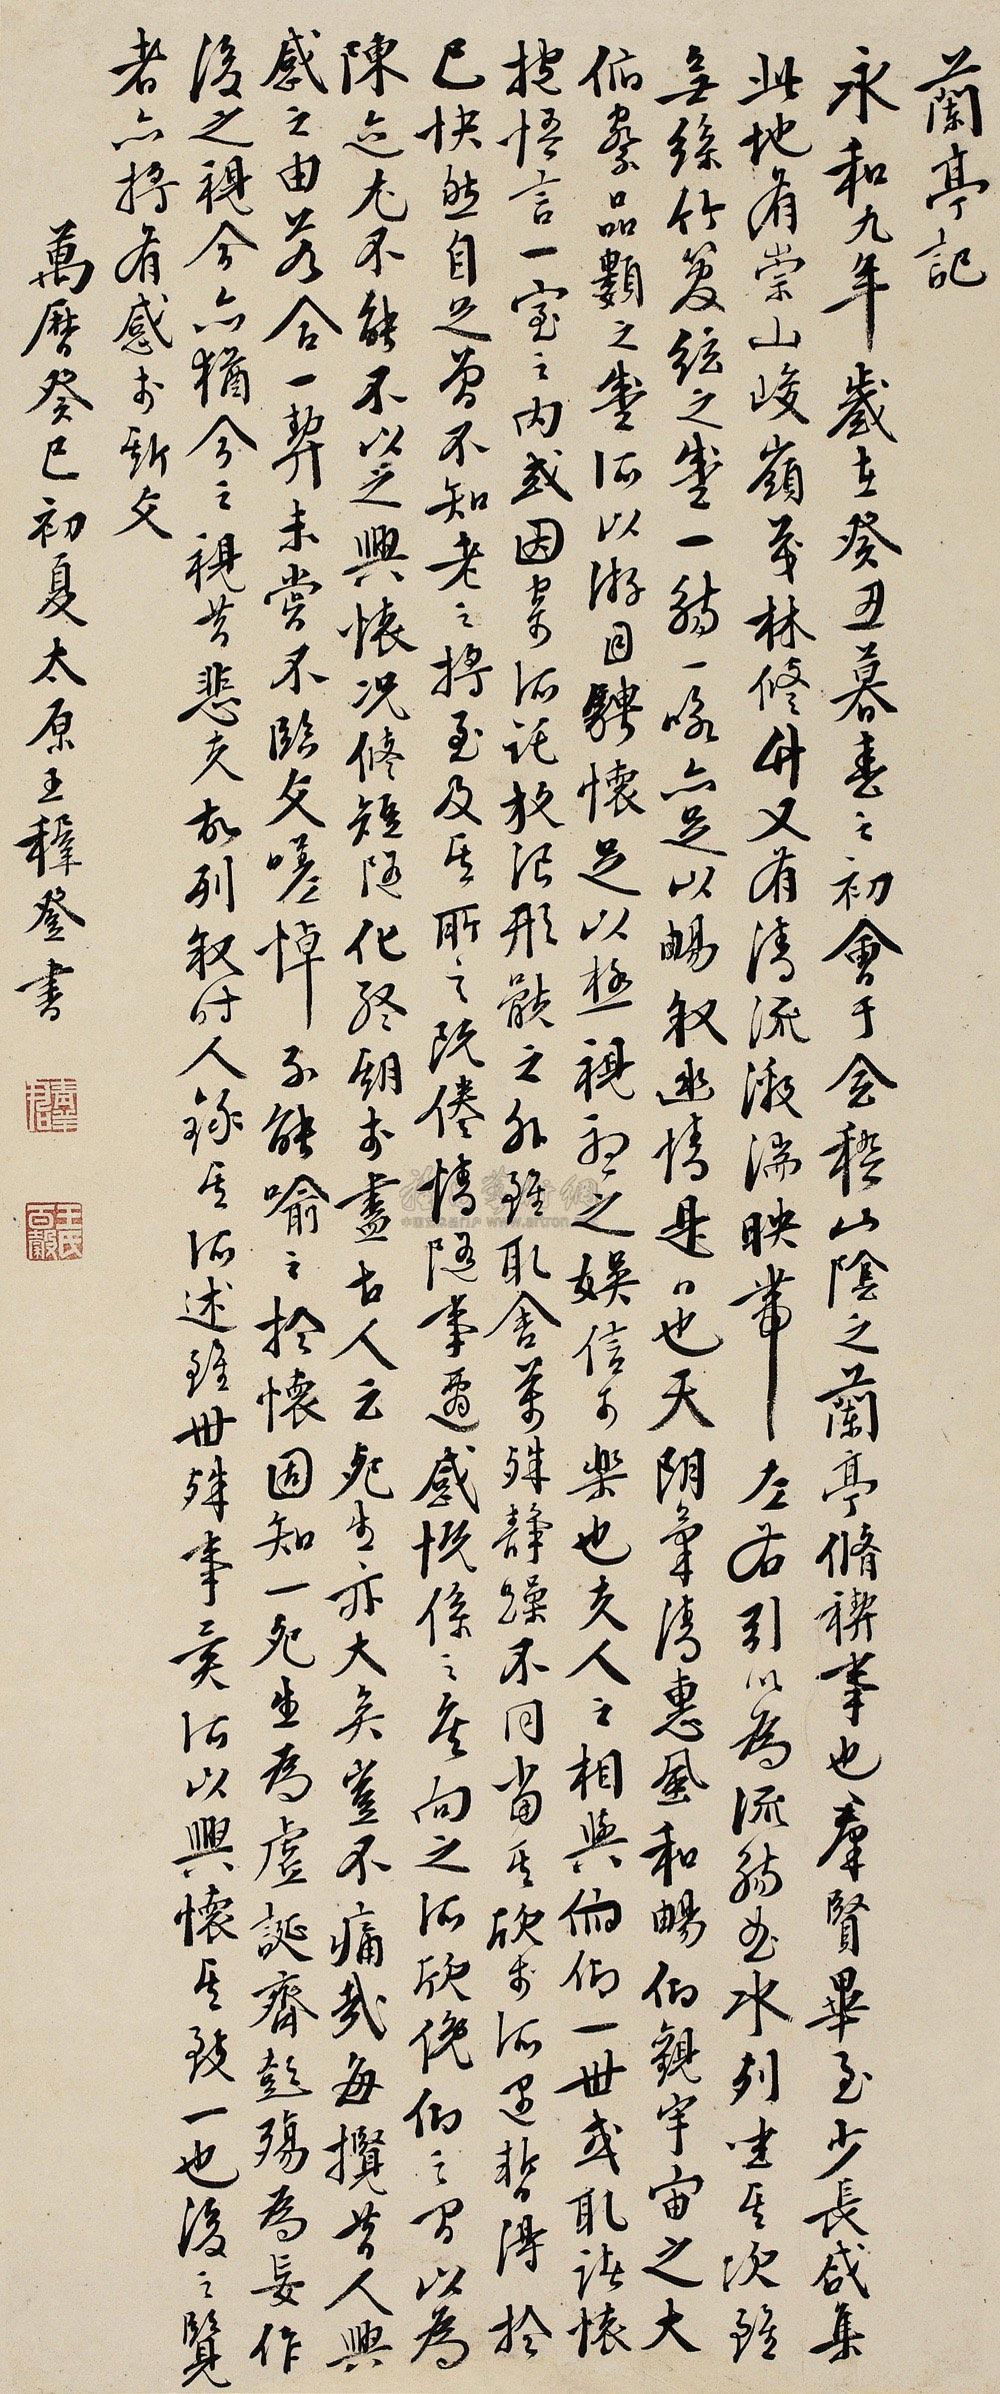 蘭亭記
永和九年歲在癸丑暮春之初會于會稽山陰之蘭亭脩禊事也羣賢畢至少長咸集
此地有崇山峻嶺茂林脩竹又有清流激湍映帶左右引以為流觴曲水列坐其次雖
無絲竹管絃之盛一觴一詠亦足以暢敘幽情是日也天朗氣清惠風和暢仰觀宇宙之大
俯察品類之盛所以游目騁懷足以極視聽之娛信可樂也夫人之相與俯仰一世或取諸懷
抱悟言一室之內或因寄所託放浪形骸之外雖取舍萬殊靜躁不同當其欣於所遇暫得於
己快然自足曾不知老之將至及其所之既倦情隨事遷感慨係之矣向之所欣俛仰之間以為
陳迹尤不能不以之興懷況脩短隨化終期於盡古人云死生亦大矣豈不痛哉每攬昔人興
感之由若合一契未嘗不臨文嗟悼不能喻之於懷固知一死生為虛誕齊彭殤為妄作
後之視今亦猶今之視昔悲夫故列敘時人錄其所述雖世殊事異所以興懷其致一也後之覽
者亦將有感於斯文
萬曆癸巳初夏太原王穉登書
王氏百穀